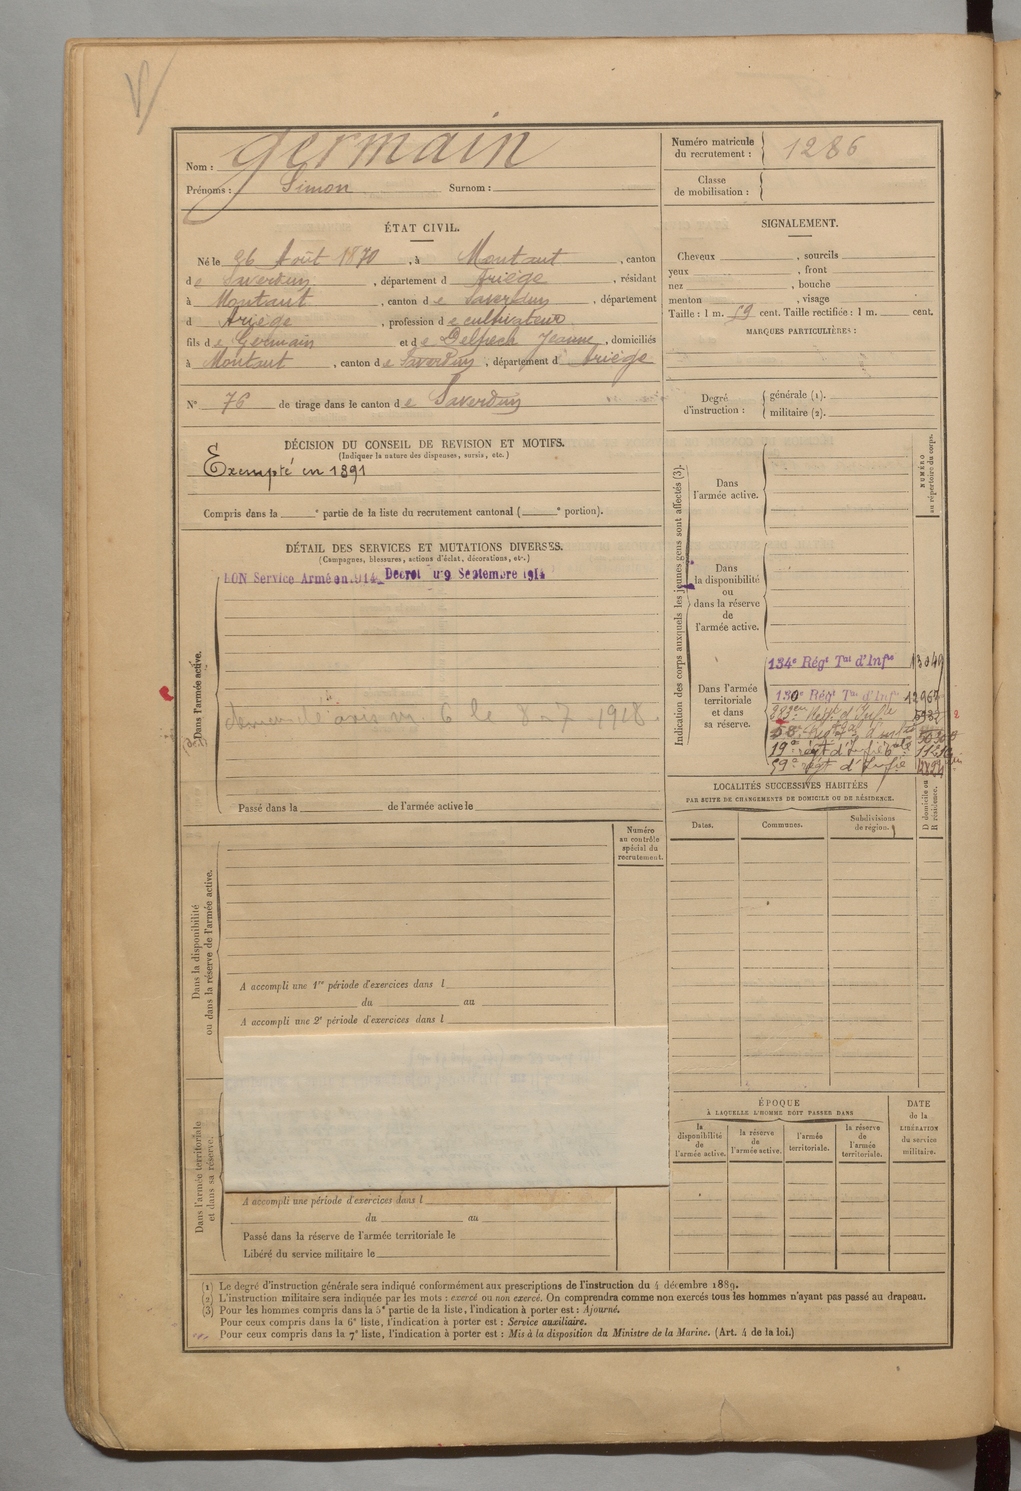 Nom : Germain
Prénoms : Simon Surnom :
Numéro matricule du recrutement : 1286
Classe de mobilisation :
ÉTAT CIVIL.
Né le 26 Août 1870, à Montaut, canton
de Saverdun, département d Ariège, résidant
à Montaut, canton de Saverdun, département
d Ariège, profession de cultivateur
fils de Germain et de Delpech Jeanne, domiciliés
à Montaut, canton de Saverdun, département d'Ariège
N° 76 de tirage dans le canton de Saverdun
SIGNALEMENT.
Cheveux , sourcils
yeux , front
nez , bouche
menton , visage
Taille : 1 m. 59 cent. Taille rectifiée : 1 m. cent.
MARQUES PARTICULIÈRES :
Degré d'instruction : générale (1).
militaire (2).
DÉCISION DU CONSEIL DE REVISION ET MOTIFS.
(Indiquer la nature des dispenses, sursis, etc.)
Exempté en 1891
Compris dans la ° partie de la liste du recrutement cantonal ( ° portion).
DÉTAIL DES SERVICES ET MUTATIONS DIVERSES.
(Campagnes, blessures, actions d'éclat, décorations, etc.)
BON Service Armé en 1914 Décret du 9 Septembre 1914
Dans l'armée active.
le 8-7-1918.
Passé dans la de l'armée active le
Indication des corps auxquels les jeunes gens sont affectés (3).
NUMÉRO au répertoire du corps.
Dans l'armée active.
Dans la disponibilité ou dans la réserve de l'armée active.
Dans l'armée territoriale et dans sa réserve.
134e Régt Tal d'Infie 13049
130e Régt Tal d'Infie
19e régt d'Infie
59e régt d'Infie
LOCALITÉS SUCCESSIVES HABITÉES
PAR SUITE DE CHANGEMENTS DE DOMICILE OU DE RÉSIDENCE.
Dates. Communes. Subdivisions de région.
D domicile ou R résidence.
Numéro au contrôle spécial du recrutement.
Dans la disponibilité ou dans la réserve de l'armée active.
A accompli une 1re période d'exercices dans l
du au
A accompli une 2e période d'exercices dans l
Dans l'armée territoriale et dans sa réserve.
A accompli une période d'exercices dans l
du au
Passé dans la réserve de l'armée territoriale le
Libéré du service militaire le
ÉPOQUE
À LAQUELLE L'HOMME DOIT PASSER DANS
la disponibilité de l'armée active.
la réserve de l'armée active.
l'armée territoriale.
la réserve de l'armée territoriale.
DATE de la LIBÉRATION du service militaire.
(1) Le degré d'instruction générale sera indiqué conformément aux prescriptions de l'instruction du 4 décembre 1889.
(2) L'instruction militaire sera indiquée par les mots : exercé ou non exercé. On comprendra comme non exercés tous les hommes n'ayant pas passé au drapeau.
(3) Pour les hommes compris dans la 5e partie de la liste, l'indication à porter est : Ajourné.
Pour ceux compris dans la 6e liste, l'indication à porter est : Service auxiliaire.
Pour ceux compris dans la 7e liste, l'indication à porter est : Mis à la disposition du Ministre de la Marine. (Art. 4 de la loi.)